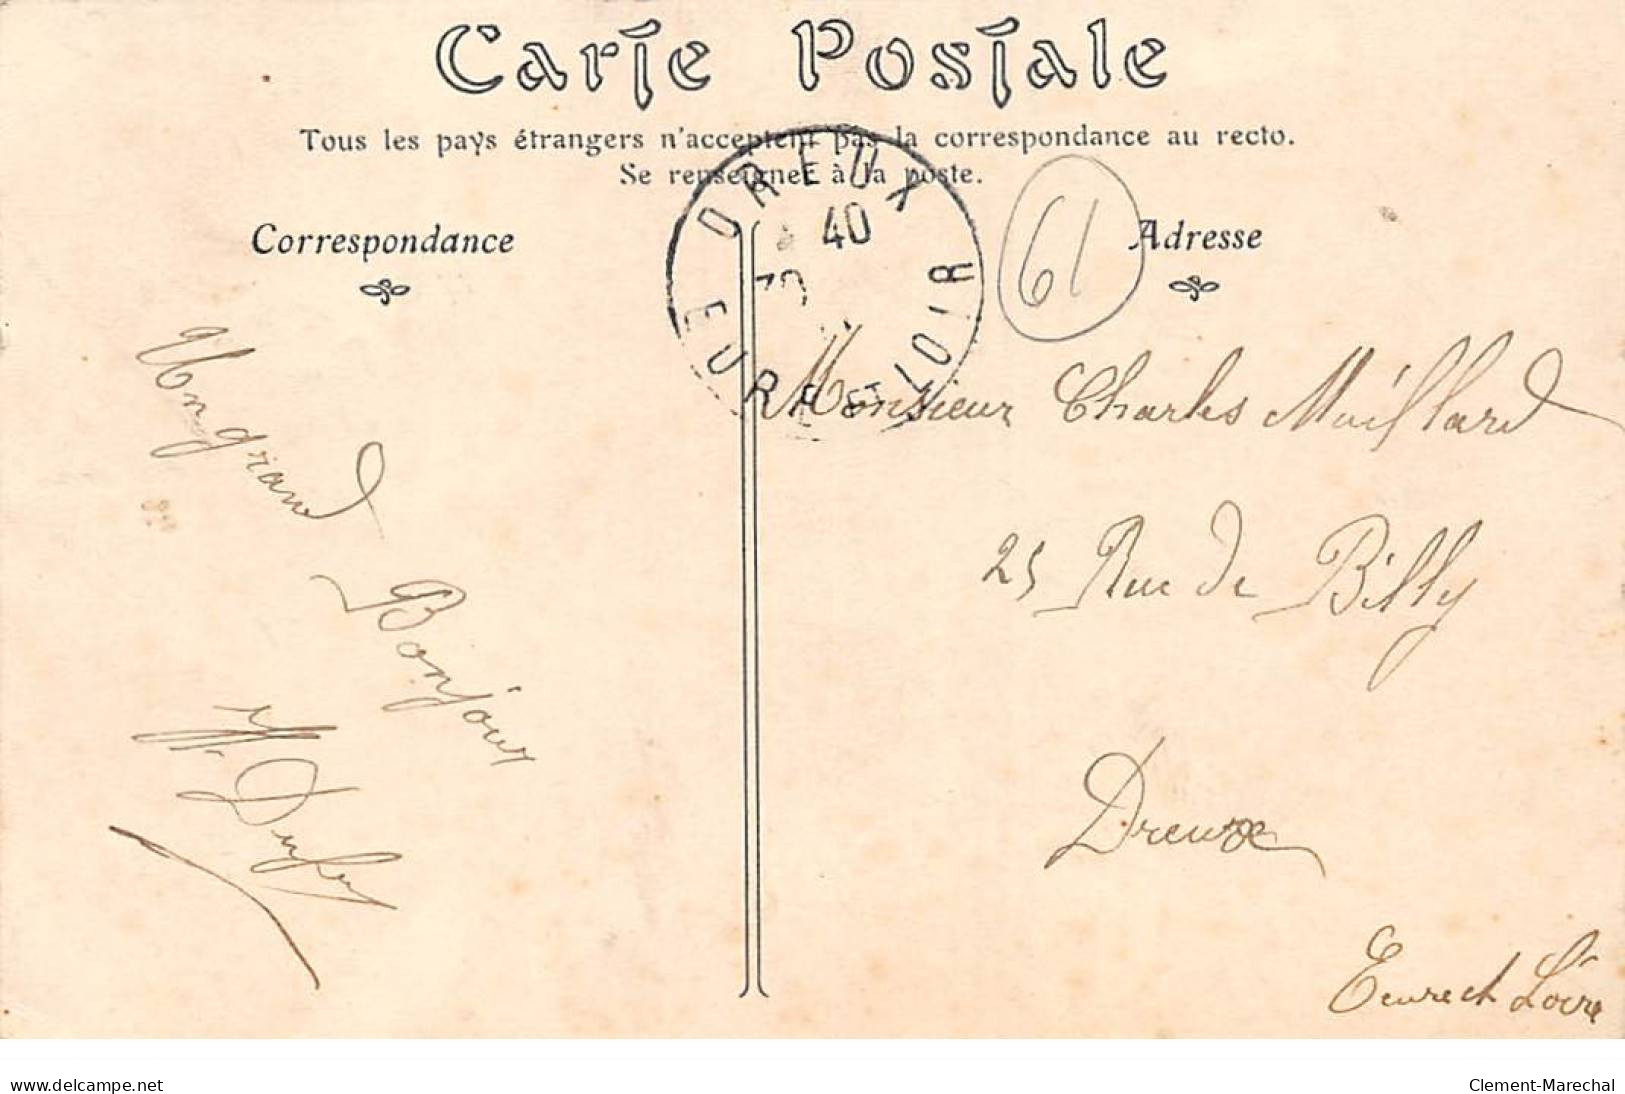 Carte Postale
Tous les pays étrangers n'acceptent pas la correspondance au recto.
Se renseigner à la poste.
Correspondance
Adresse
DREUX
40
EURE ET LOIR
61
Un grand
Bonjour
Monsieur Charles Maillard
25 Rue de Billy
Dreux
Eure et Loire
www.delcampe.net
Clement-Marechal